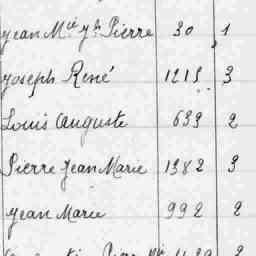 Jean Mie Jh Pierre 30 1
Joseph René 1215 3
Louis Auguste 639 2
Pierre Jean Marie 1382 3
Jean Marie 992 2